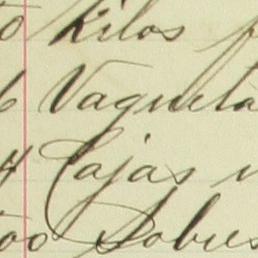 0 Kilos p
6 Vaqueta
4 Cajas
00 Sobres